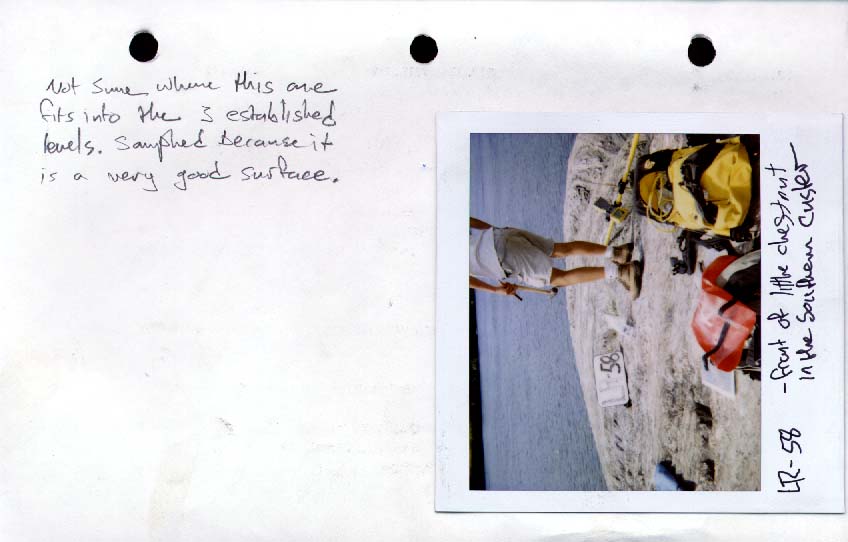 Not sure where this one
fits into the 3 established
levels. Sampled because it
is a very good surface.
LR-58 -front of little chestnut
in the Southern Cluster
58